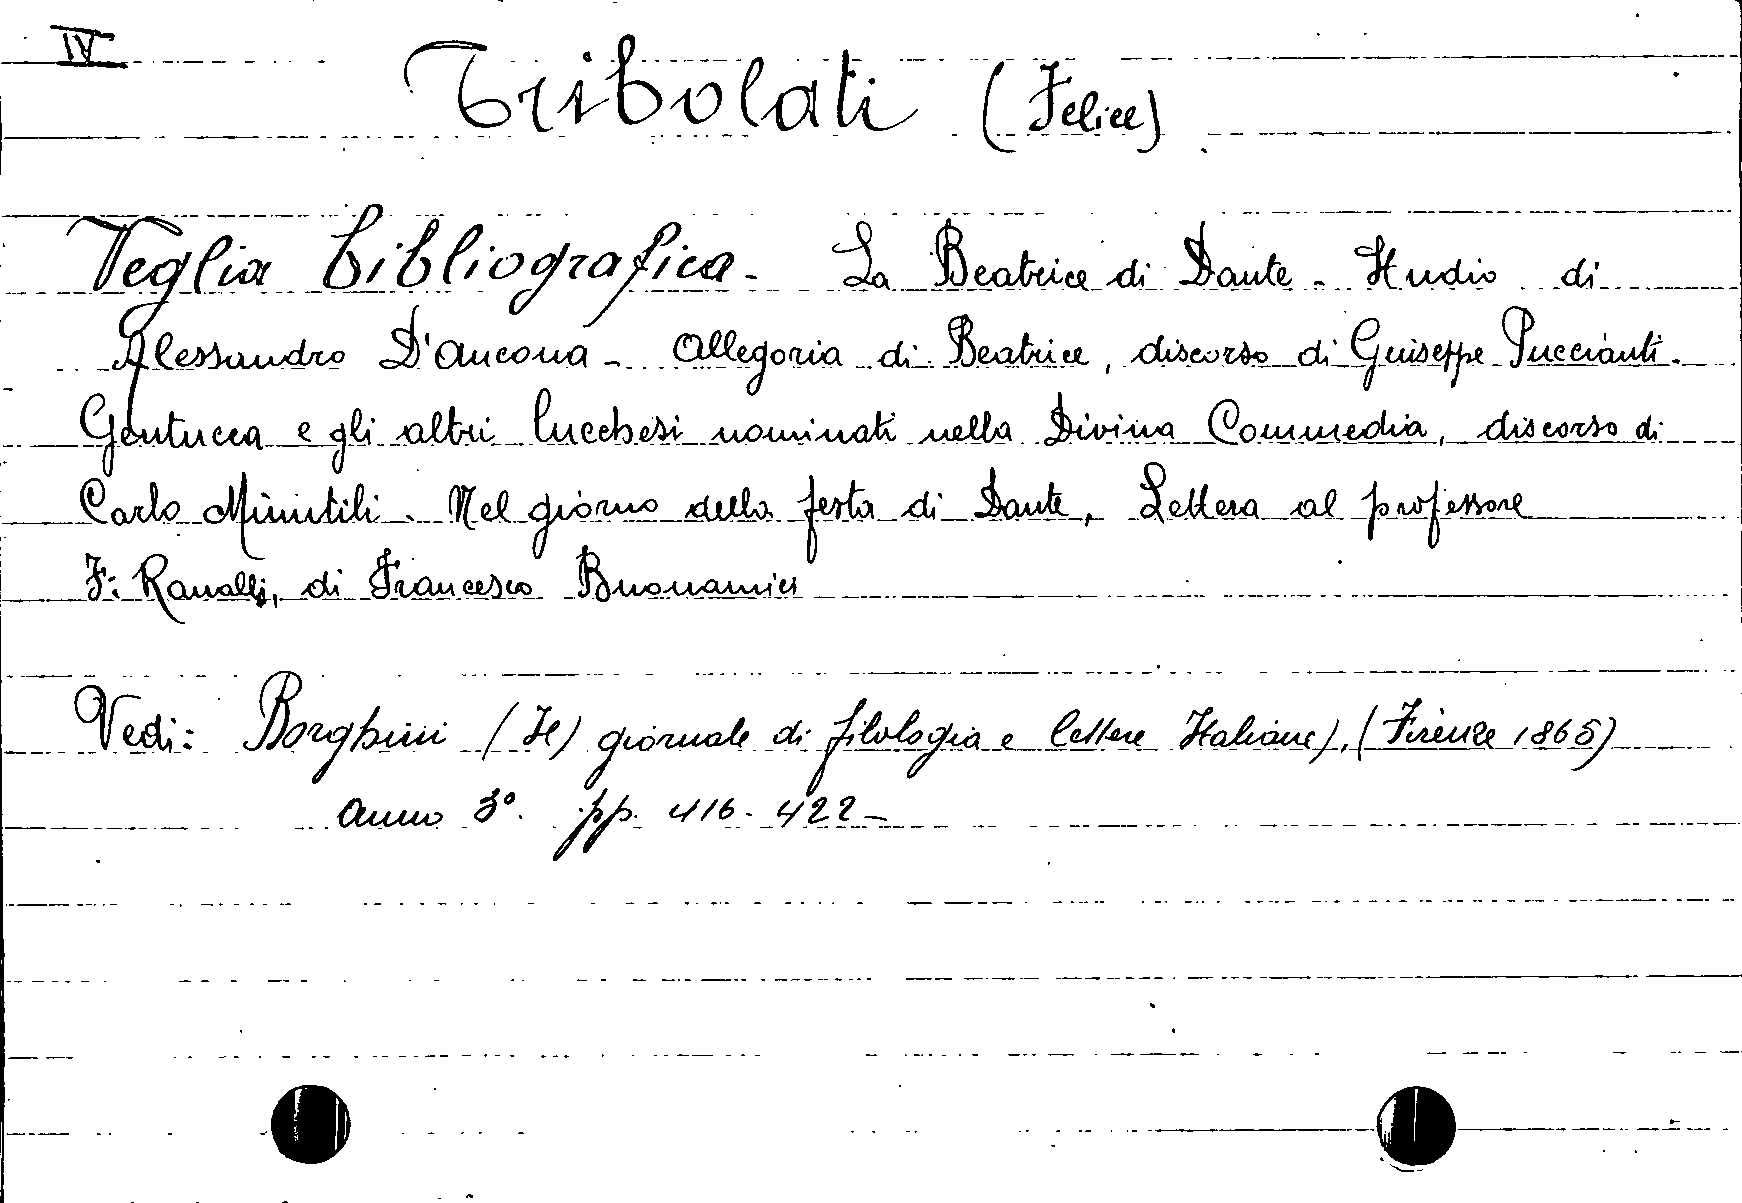 IV
Tribolati (Felice)
Veglia bibliografica - La Beatrice di Dante - Studio di
Alessandro D'Ancona - Allegoria di Beatrice, discorso di Giuseppe Puccianti -
Gentucca e gli altri lucchesi nominati nella Divina Commedia, discorso di
Carlo Minutili. Nel giorno della festa di Dante, Lettera al professore
F: Ranalli, di Francesco Buonamici
Vedi: Borghini (Il) giornale di filologia e lettere Italiane), (Firenze 1865)
anno 3º. pp. 416-422-